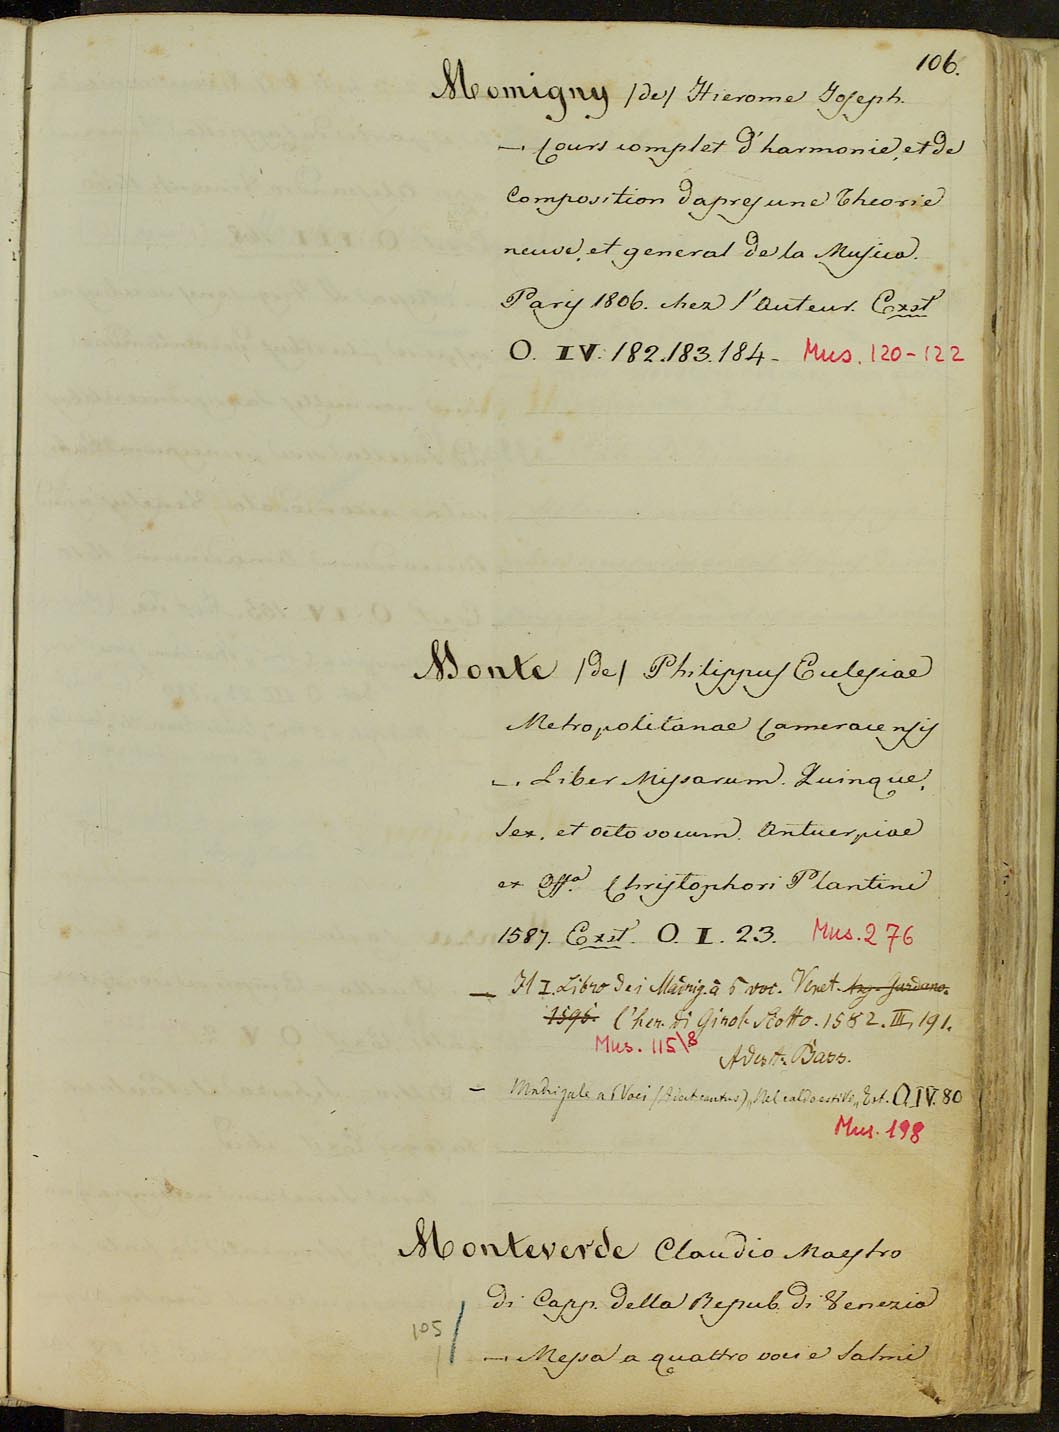 106.
Momigny /de/ Hierome Joseph.
–. Cours complet d'harmonie, et de
Composition dapres une Theorie
neuve, et general de la Musica.
Paris 1806. chez l'Auteur. Exst
O. IV. 182. 183. 184 – Mus. 120-122
Monte /de/ Philippus Eclesiae
Metropolitanae Cameracensis
–. Liber Missarum. Quinque,
Sex, et octo vocum. Antuerpiae
ex Offa. Christophori Plantini
1587. Exst. O. I. 23. Mus. 276
– Il I. Libro dei Madrig. à 5 voc. Venet. Ang. Gardano.
1596. l'her. di Girol. Scotto. 1582. III, 191.
Mus. 115\8 Adest. Bass.
– Madrigale a 5 Voci (Adest cantus) „Nel caldo estivo„ Ext. O. IV. 80
Mus. 198
Monteverde Claudio Maestro
di Capp. della Repub. di Venezia
105
–. Messa a quattro voci e Salmi